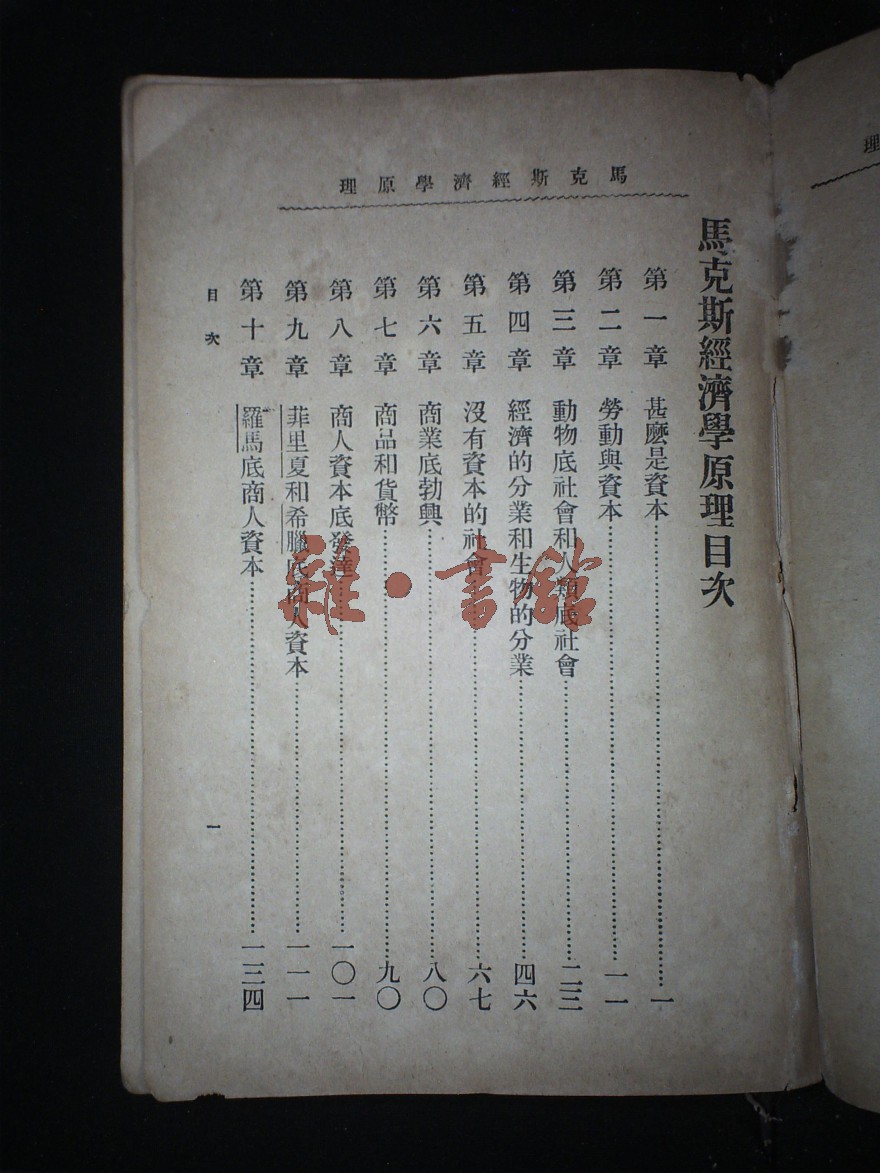 馬克斯經濟學原理
馬克斯經濟學原理目次
第一章 甚麼是資本…………一
第二章 勞動與資本…………一一
第三章 動物底社會和人類底社會…………二三
第四章 經濟的分業和生物的分業…………四六
第五章 沒有資本的社會…………六七
第六章 商業底勃興…………八〇
第七章 商品和貨幣…………九〇
第八章 商人資本底發達…………一〇一
第九章 菲里夏和希臘底商人資本…………一一一
第十章 羅馬底商人資本…………一三四
目次
一
理
雜·書館